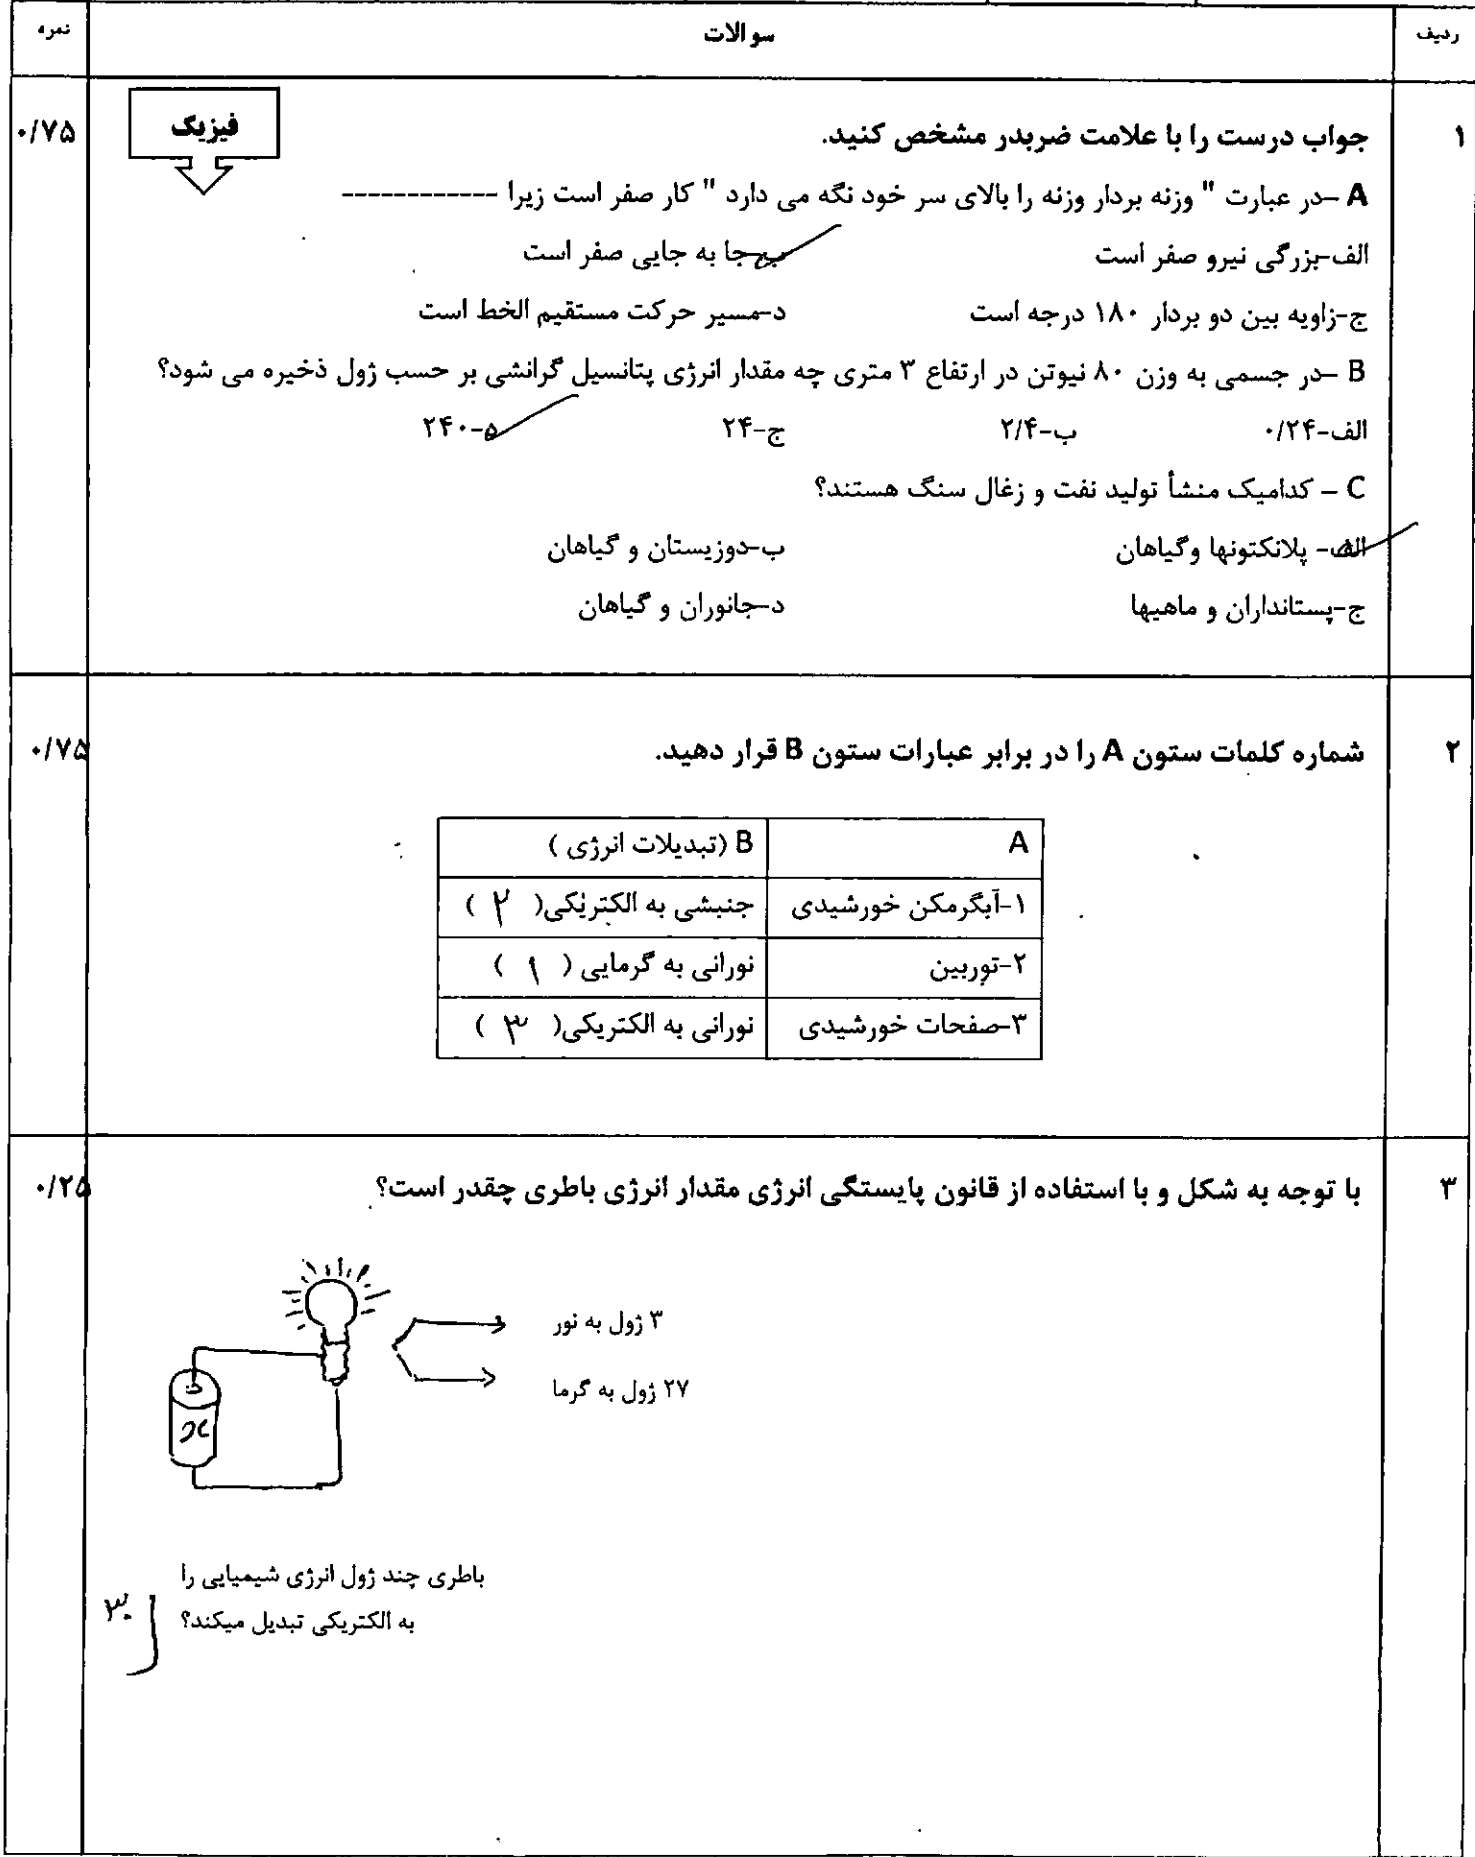 ردیف سوالات نمره
۱ جواب درست را با علامت ضربدر مشخص کنید. ۰/۷۵
فیزیک
A –در عبارت " وزنه بردار وزنه را بالای سر خود نگه می دارد " کار صفر است زیرا ------------
الف-بزرگی نیرو صفر است ب-جا به جایی صفر است
ج-زاویه بین دو بردار ۱۸۰ درجه است د-مسیر حرکت مستقیم الخط است
B –در جسمی به وزن ۸۰ نیوتن در ارتفاع ۳ متری چه مقدار انرژی پتانسیل گرانشی بر حسب ژول ذخیره می شود؟
الف-۰/۲۴ ب-۲/۴ ج-۲۴ د-۲۴۰
C – کدامیک منشأ تولید نفت و زغال سنگ هستند؟
الف- پلانکتونها وگیاهان ب-دوزیستان و گیاهان
ج-پستانداران و ماهیها د-جانوران و گیاهان
۲ شماره کلمات ستون A را در برابر عبارات ستون B قرار دهید. ۰/۷۵
A B (تبدیلات انرژی )
۱-آبگرمکن خورشیدی جنبشی به الکتریکی( ۲ )
۲-توربین نورانی به گرمایی ( ۱ )
۳-صفحات خورشیدی نورانی به الکتریکی( ۳ )
۳ با توجه به شکل و با استفاده از قانون پایستگی انرژی مقدار انرژی باطری چقدر است؟ ۰/۲۵
۳ ژول به نور
۲۷ ژول به گرما
x
باطری چند ژول انرژی شیمیایی را
به الکتریکی تبدیل میکند؟
۳۰ J